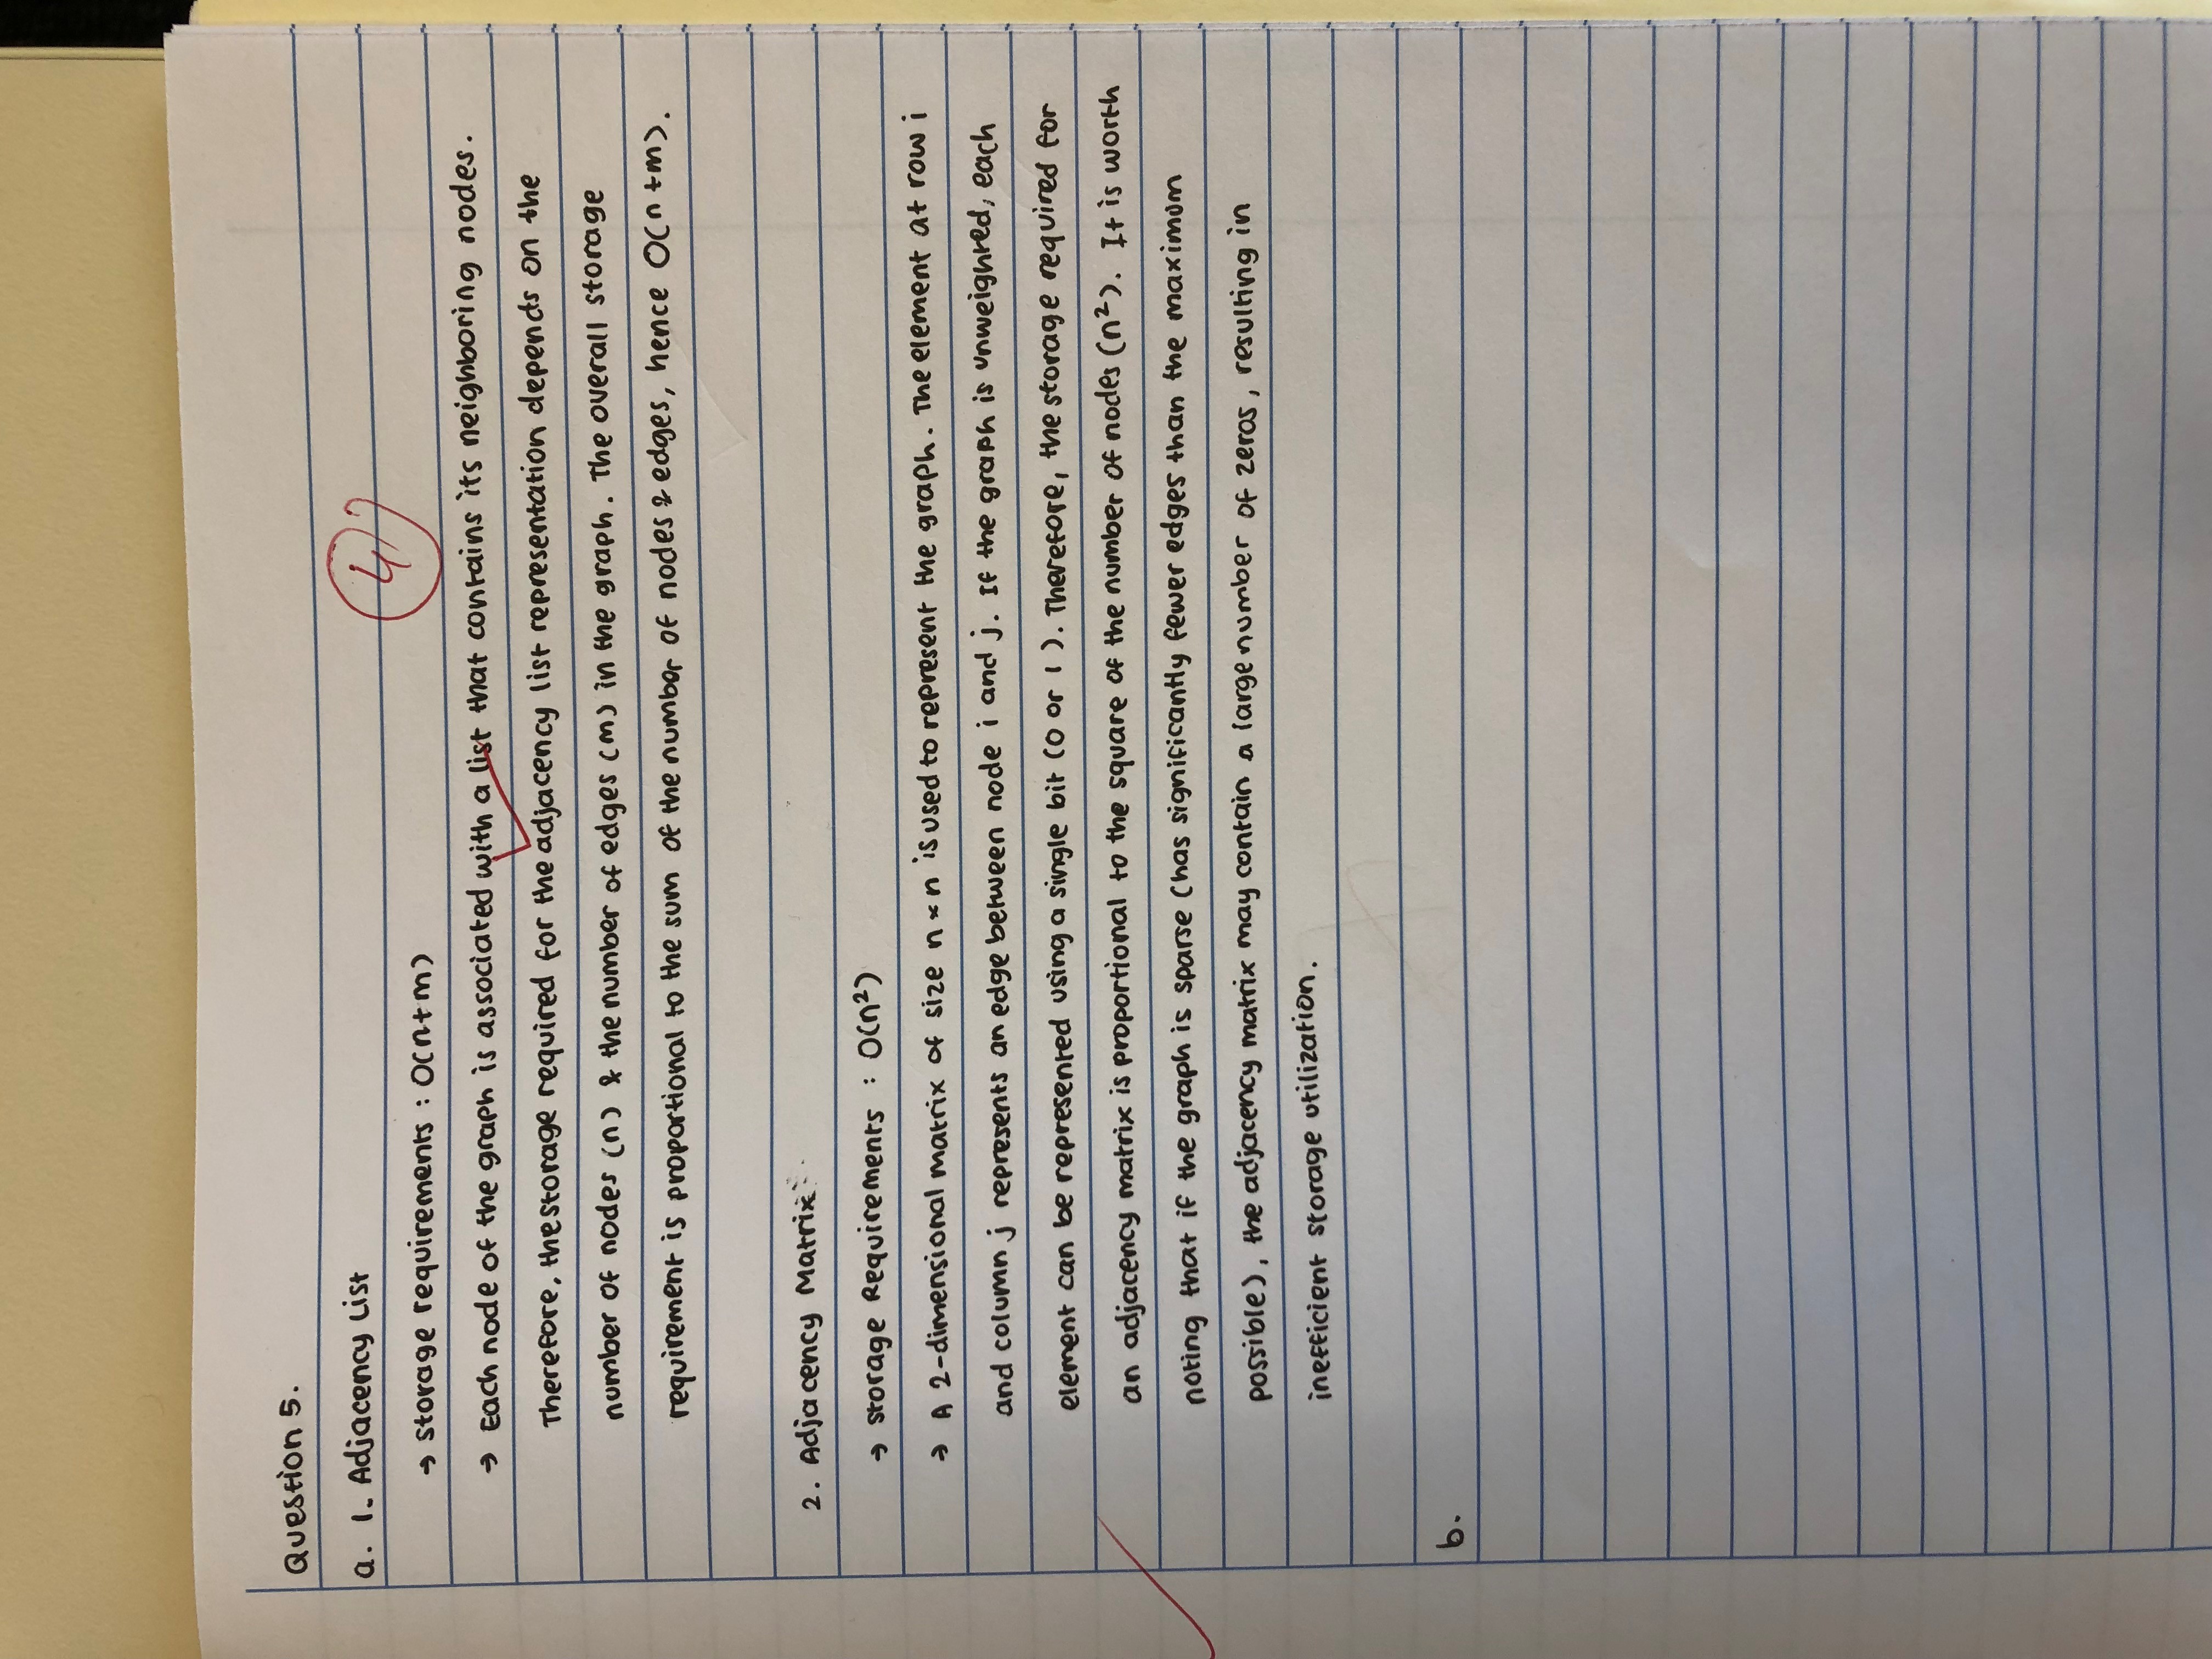 Question 5.
a. 1. Adjacency List
4
→ Storage requirements : O(n+m)
→ Each node of the graph is associated with a list that contains its neighboring nodes.
Therefore, the storage required for the adjacency list representation depends on the
number of nodes (n) & the number of edges (m) in the graph. The overall storage
requirement is proportional to the sum of the number of nodes & edges, hence O(n+m).
2. Adjacency Matrix
→ Storage Requirements : O(n²)
→ A 2-dimensional matrix of size n×n is used to represent the graph. The element at row i
and column j represents an edge between node i and j. If the graph is unweighted, each
element can be represented using a single bit (0 or 1). Therefore, the storage required for
an adjacency matrix is proportional to the square of the number of nodes (n²). It is worth
noting that if the graph is sparse (has significantly fewer edges than the maximum
possible), the adjacency matrix may contain a large number of zeros, resulting in
inefficient storage utilization.
b.